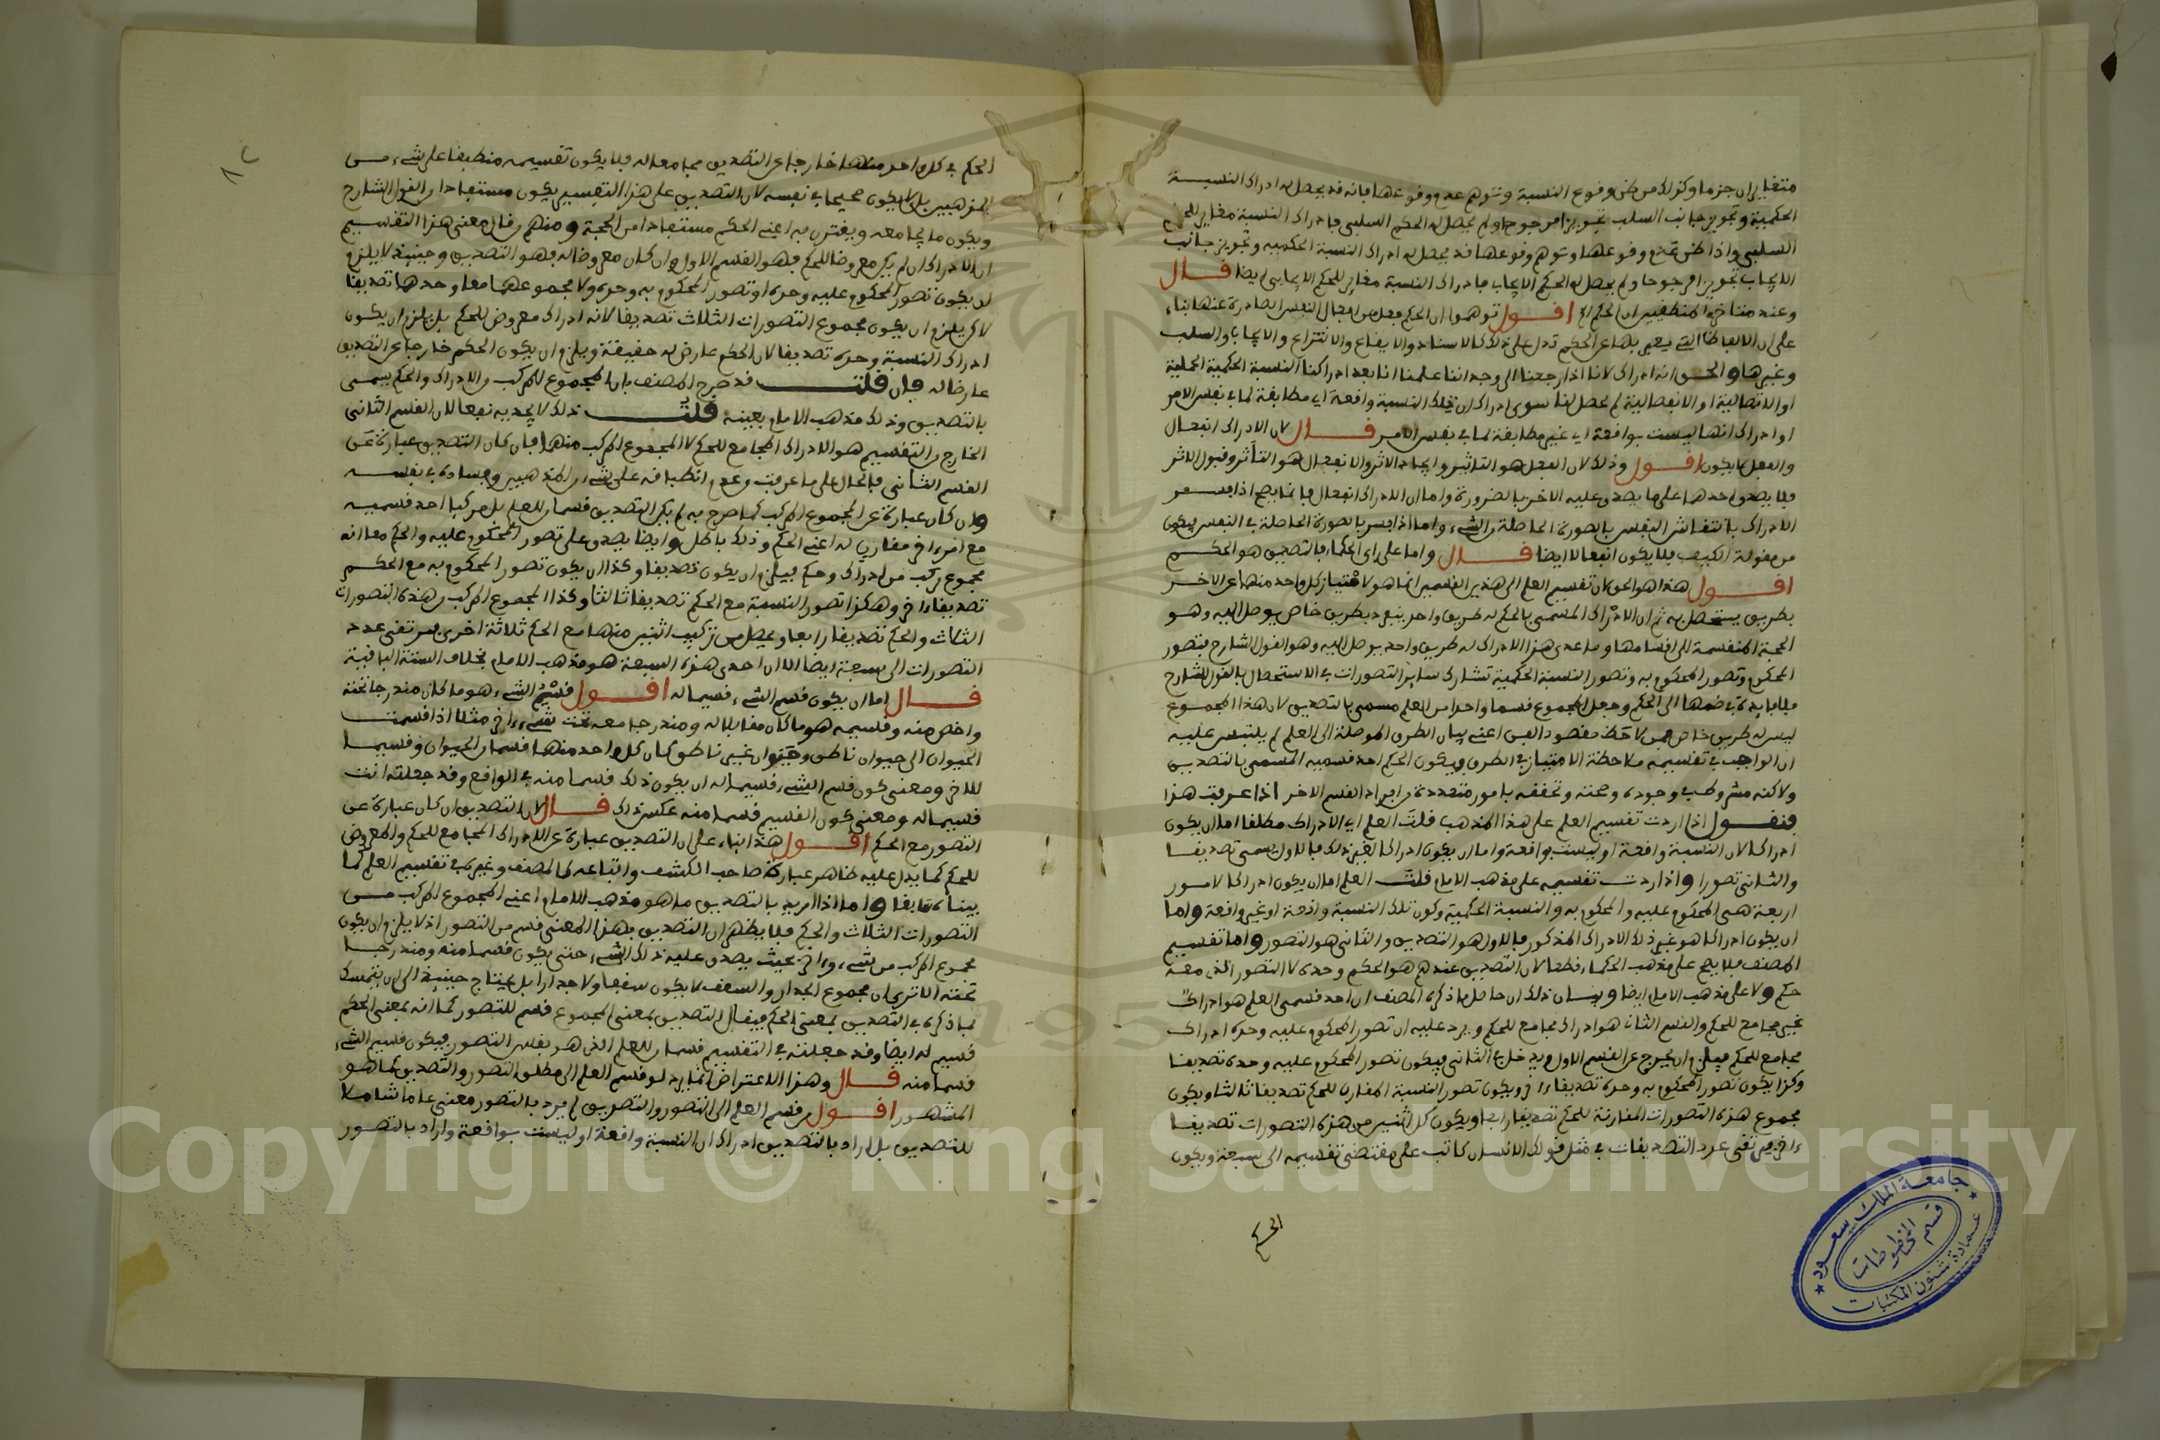 متغايران جزما وكذلك من ظن وقوع النسبة وتوهم عدم وقوعها فانه قد يحصل له ادراك النسبة
الحكمية وتجويز جانب السلب تجويزا مرجوحا ولم يحصل له الحكم السلبي فادراك النسبة مغاير للحكم
السلبي واذا ظن عدم وقوعها وتوهم وقوعها قد يحصل له ادراك النسبة الحكمية وتجويز جانب
الايجاب تجويزا مرجوحا ولم يحصل له الحكم الايجابي فادراك النسبة مغاير للحكم الايجابي ايضا قال
وعند متاخري المنطقيين ان الحكم الخ اقول توهموا ان الحكم فعل من افعال النفس الصادرة عنها بناء
على ان الالفاظ التي يعبر بها عن الحكم تدل على ذلك كالاسناد والايقاع والانتزاع والايجاب والسلب
وغيرها والحق انه ادراك لانا اذا رجعنا الى وجداننا علمنا انا بعد ادراكنا النسبة الحكمية الحملية
او الاتصالية او الانفصالية لم يحصل لنا سوى ادراك ان تلك النسبة واقعة اي مطابقة لما في نفس الامر
او ادراك انها ليست بواقعة اي غير مطابقة لما في نفس الامر قال لان الادراك انفعال
والفعل لا يكون اقول وذلك لان الفعل هو التاثير وايجاد الاثر والانفعال هو التأثر وقبول الاثر
فلا يصدق احدهما على ما يصدق عليه الاخر بالضرورة واما ان الادراك انفعال فانما يصح اذا فسر
الادراك بانتقاش النفس بالصورة الحاصلة من الشيء واما اذا فسر بالصورة الحاصلة في النفس فيكون
من مقولة الكيف فلا يكون انفعالا ايضا قال واما على راي الحكماء فالتصديق هو الحكم
اقول هذا هو الحق لان تقسيم العلم الى هذين القسمين انما هو لامتياز كل واحد منهما عن الاخر
بطريق يستحصل به ثم ان الادراك المسمى بالحكم له طريق واحد ينفرد بطريق خاص يوصل اليه وهو
الحجة المنقسمة الى اقسامها وما عدى هذا الادراك له طريق واحد يوصل اليه وهو القول الشارح فتصور
المحكوم وتصور المحكوم به وتصور النسبة الحكمية تشارك سائر التصورات في الاستحصال بالقول الشارح
فلا فايدة في ضمها الى الحكم وجعل المجموع قسما واحدا من العلم مسمى بالتصديق لان هذا المجموع
ليس له طريق خاص فمن لاحظ مقصود الفن اعني بيان الطرق الموصلة الى العلم لم يلتبس عليه
ان الواجب في تقسيمه ملاحظة الامتياز في الطرق فيكون الحكم احد قسميه المسمى بالتصديق
ولاكنه مشروط في وجوده وصحته وتحققه بامور متعددة من افراد القسم الاخر اذا عرفت هذا
فنقول اذا اردت تقسيم العلم على هذا المذهب قلت العلم اي الادراك مطلقا اما ان يكون
ادراكا لان النسبة واقعة او ليست بواقعة واما ان يكون ادراكا لغير ذلك فالاول يسمى تصديقا
والثاني تصورا واذا اردت تقسيمه على مذهب الامام قلت العلم اما ان يكون ادراكا لامور
اربعة هي المحكوم عليه والمحكوم به والنسبة الحكمية وكون تلك النسبة واقعة او غير واقعة واما
ان يكون ادراكا هو غير ذلك الادراك المذكور فالاول هو التصديق والثاني هو التصور واما تقسيم
المصنف فلا يصح على مذهب الحكماء قطعا لان التصديق عندهم هو الحكم وحده لا التصور الذي معه
حكم ولا على مذهب الامام ايضا وبيان ذلك ان حاصل ما ذكره المصنف ان احد قسمي العلم هو ادراك
غير مجامع للحكم والقسم الثاني هو ادراك مجامع للحكم ويرد عليه ان تصور المحكوم عليه وحده ادراك
مجامع للحكم فيلزم ان يخرج عن القسم الاول ويدخل في الثاني فيكون تصور المحكوم عليه وحده تصديقا
وكذا يكون تصور المحكوم به وحده تصديقا اخر ويكون تصور النسبة المقارن للحكم تصديقا ثالثا ويكون
مجموع هذه التصورات المقارنة للحكم تصديقا رابعا ويكون كل اثنين من هذه التصورات تصديقا
اخر فيرتقي عدد التصديقات في مثل قولك الانسان كاتب على مقتضى تقسيمه الى سبعة ويكون
الحكم
جامعة الملك سعود
قسم المخطوطات
عمادة شئون المكتبات
٨٢
الحكم في كل واحد منها خارجا عن التصديق مجامعا له فلا يكون تقسيمه منطبقا على شيء من
المذهبين بل لا يكون صحيحا في نفسه لان التصديق على هذا التقسيم يكون مستفادا من القول الشارح
ويكون ما يجامعه ويقترن به اعني الحكم مستفادا من الحجة ومنهم من قال معنى هذا التقسيم
ان الادراك ان لم يكن معروضا للحكم فهو القسم الاول وان كان معروضا له فهو التصديق وحينئذ لا يلزم
ان يكون تصور المحكوم عليه وحده او تصور المحكوم به وحده ولا مجموعهما معا وحدهما تصديقا
لاكن يلزم ان يكون مجموع التصورات الثلاث تصديقا لانه ادراك معروض للحكم بل يلزم ان يكون
ادراك النسبة وحده تصديقا لان الحكم عارض له حقيقة ويلزم ان يكون الحكم خارجا عن التصديق
عارضا له فان قلت قد صرح المصنف بان المجموع المركب من الادراك والحكم يسمى
بالتصديق وذلك مذهب الامام بعينه قلت ذلك لا يجديه نفعا لان القسم الثاني
الخارج من التقسيم هو الادراك المجامع للحكم لا المجموع المركب منهما فان كان التصديق عبارة عن
القسم الثاني فالحال على ما عرفت وعدم انطباقه على شيء من المذهبين وفساده في نفسه
وان كان عبارة عن المجموع المركب كما صرح به لم يكن التصديق قسما من العلم بل مركبا احد قسميه
مع امر اخر مقارن له اعني الحكم وذلك باطل وايضا يصدق على تصور المحكوم عليه والحكم معا انه
مجموع مركب من ادراك وحكم فيلزم ان يكون تصديقا وكذا ان يكون تصور المحكوم به مع الحكم
تصديقا اخر وهكذا تصور النسبة مع الحكم تصديقا ثالثا وكذا المجموع المركب من هذه التصورات
الثلاث والحكم تصديقا رابعا ويحصل من تركيب اثنين منها مع الحكم ثلاثة اخرى فيرتقي عدد
التصورات الى سبعة ايضا الا ان احدى هذه السبعة هو مذهب الامام بخلاف الستة الباقية
قال اما ان يكون قسم الشيء قسيما له اقول قسم الشيء هو ما كان مندرجا تحته
واخص منه وقسيمه هو ما كان مقابلا له ومندرجا معه تحت شيء اخر مثلا اذا قسمت
الحيوان الى حيوان ناطق وحيوان غير ناطق كان كل واحد منهما قسما من الحيوان وقسيما
للاخر ومعنى كون قسم الشيء قسيما له ان يكون ذلك قسما منه في الواقع وقد جعلته انت
قسيما له ومعنى كون القسيم قسما منه عكس ذلك قال لان التصديق ان كان عبارة عن
التصور مع الحكم اقول هذا بناء على ان التصديق عبارة عن الادراك المجامع للحكم والمعروض
للحكم كما يدل عليه ظاهر عبارة صاحب الكشف واتباعه كالمصنف وغيره في تقسيم العلم كما
بيناه سابقا واما اذا اريد بالتصديق ما هو مذهب الامام اعني المجموع المركب من
التصورات الثلاث والحكم فلا يظهر ان التصديق بهذا المعنى قسم من التصور اذ لا يلزم ان يكون
مجموع المركب من شيء واخر بحيث يصدق عليه ذلك الشيء حتى يكون قسما منه ومندرجا
تحته الا ترى ان مجموع الجدار والسقف لا يكون سقفا ولا جدارا بل يحتاج حينئذ الى ان يتمسك
بما ذكره في التصديق بمعنى الحكم فيقال التصديق بمعنى المجموع قسيم للتصور كما انه بمعنى الحكم
قسيم له ايضا وقد جعلته في التقسيم قسما من العلم الذي هو نفس التصور فيكون قسيم الشيء
قسما منه قال وهذا الاعتراض انما يرد لو قسم العلم الى مطلق التصور والتصديق كما هو
المشهور اقول من قسم العلم الى التصور والتصديق لم يرد بالتصور معنى عاما شاملا
للتصديق بل اراد بالتصديق ادراك ان النسبة واقعة او ليست بواقعة واراد بالتصور
Copyright © King Saud University